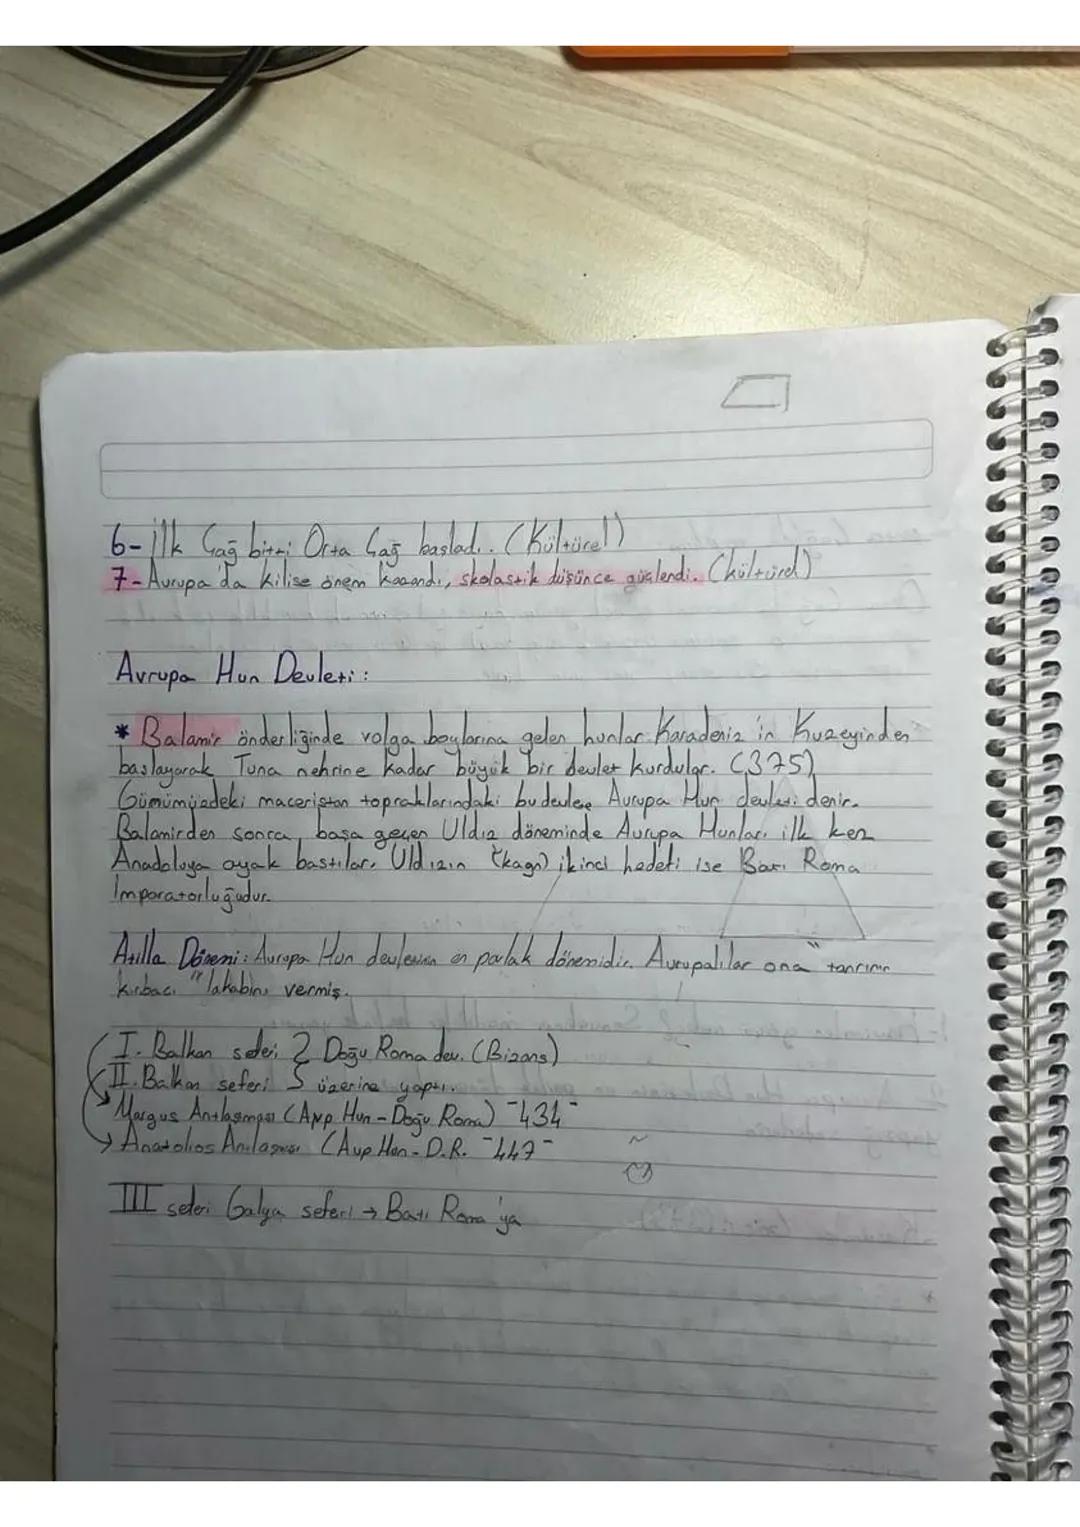 6- İlk Çağ bitti Orta Çağ başladı. (Kültürel)
7- Avrupa'da kilise önem kazandı, skolastik düşünce güçlendi. (kültürel)
Avrupa Hun Devleti:
* Balamir önderliğinde volga boylarına gelen hunlar Karadeniz'in Kuzeyinden
başlayarak Tuna nehrine kadar büyük bir devlet kurdular. (375)
Günümüzdeki maceristan topraklarındaki bu devlete Avrupa Hun devleti denir.
Balamirden sonra başa geçen Uldız döneminde Avrupa Hunları ilk kez
Anadoluya ayak bastılar. Uldızın (kagn) ikinci hedefi ise Batı Roma
İmparatorluğudur.
Atilla Dönemi: Avrupa Hun devletinin en parlak dönemidir. Avrupalılar ona "tanrının
kırbacı" lakabını vermiş.
I. Balkan seferi } Doğu Roma dev. (Bizans)
II. Balkan seferi } üzerine yaptı.
Margus Antlaşması (Avp Hun - Doğu Roma) -434-
Anatolios Antlaşması (Avp Hun - D.R. -447-
III seferi Galya seferi → Batı Roma'ya